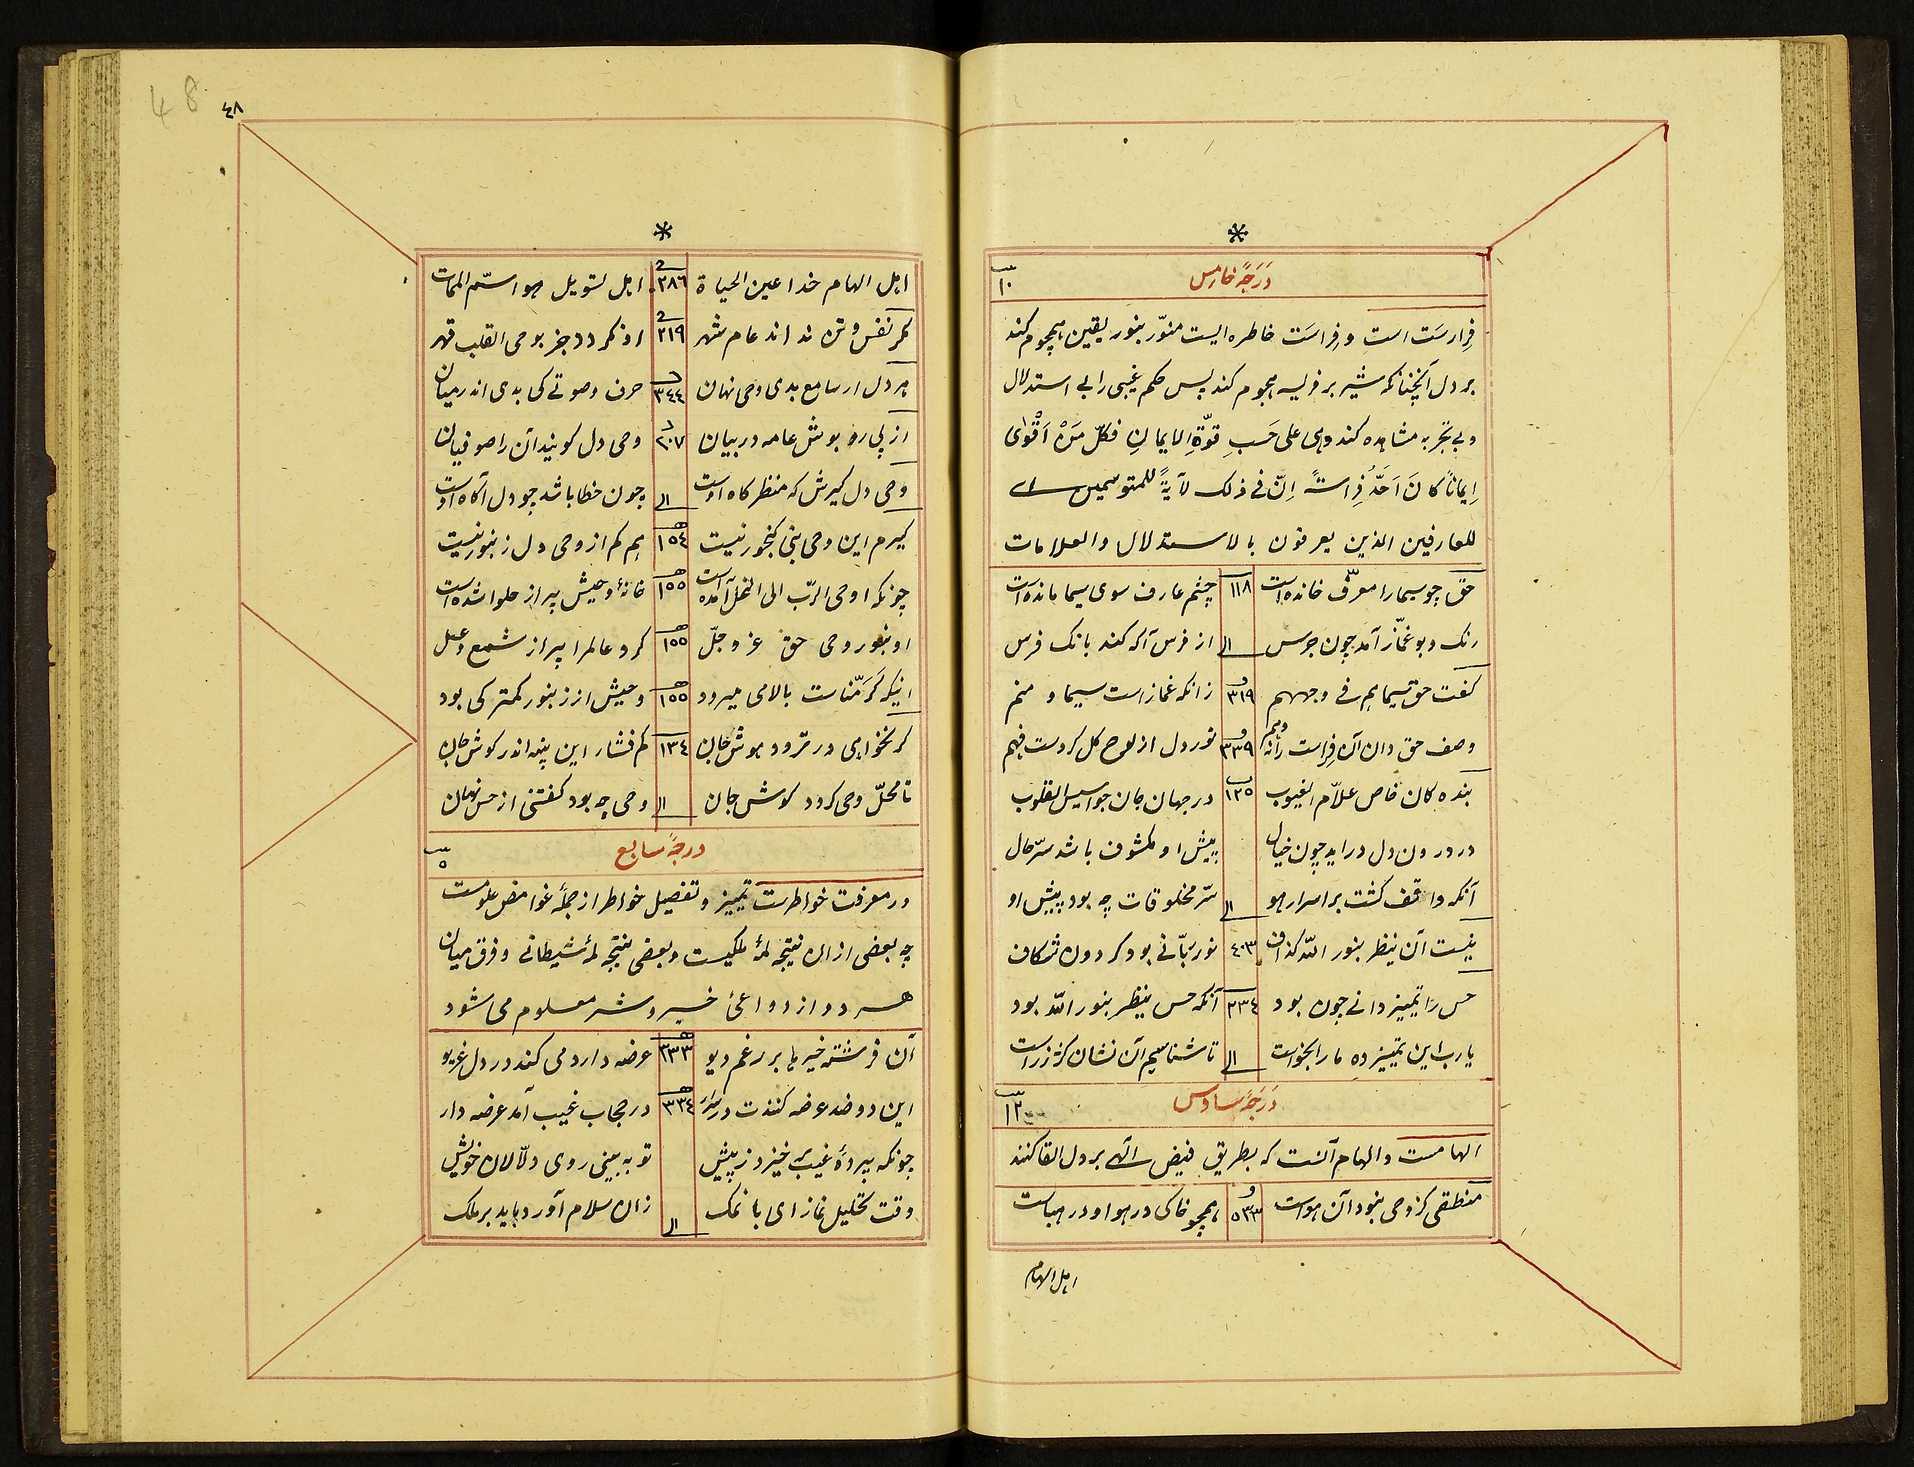 درجهٔ خامس
١٠
فِراست است و فِراسَت خاطره ایست منوّر بنور یقین هجوم کند
بر دل آنچنانکه شیر بر فریسه هجوم کند پس حکم غیبی را بی استدلال
و بی تجربه مشاهده کند وهی علی حَسَبِ قوّةِ الایمانِ فکلّ مَنْ اَقْوٰی
اِیماناً کانَ اَحَدُّ فِراسَةً اِنّ فی ذلک لآیةً للمتوسمین ای
للعارفین الذین یعرفون بالاستدلال والعلامات
حق چو سیما را معرّف خوانده است ١١٨ چشم عارف سوی سیما مانده است
رنک و بو غمّاز آمد چون جرس از فرس آکه کند بانک فرس
کفت حق سیماهم فی وجههم ٣١٩ زانکه غمازاست سیما و منم
وصف حق دان آن فراست را نه وهم ٣٣٩ نور دل از لوح کل کردست فهم
بنده کان خاص علاّم الغیوب ١٢٥ در جهان جان جواسیس القلوب
در درون دل دراید چون خیال پیش او مکشوف باشد سرّ حال
آنکه واقف کشت بر اسرار هو سرّ مخلوقات چه بود پیش او
نیست آن ینظر بنور اللّه کذاف ٤٠٣ نور ربّانی بود کردون شکاف
حس را تمییز دانی چون بود ٢٣٤ آنکه حس ینظر بنور اللّه بود
یارب این تمییز ده ما را بخواست تا شناسیم آن نشان کژ ز راست
درجهٔ سادس
١٢
الهامست و الهام آنست که بطریق فیض الهی بر دل القا کنند
منطقی کز وحی نبود آن هواست ٥٣٣ همچو خاکی در هوا و در هباست
اهل الهام
48
٤٨
اهل الهام خدا عین الحیاة ٢٨٦ اهل تسویل هوا سمّ الممات
کر نفس و تن نداند عام شهر ٢١٩ او نکردد جز بوحی القلب قهر
هر دل ار سامع بدی وحی نهان ٣٤٤ حرف و صوتی کی بدی اندر میان
از پی رو پوش عامه در بیان ٢٠٧ وحی دل کویند آن را صوفیان
وحی دل کیرش که منظرکاه اوست چون خطا باشد چو دل آکاه اوست
کیرم این وحی نبی کنجور نیست ١٥٤ هم کم از وحی دل زنبور نیست
چونکه اوحی الربّ الی النحل آمده است ١٥٥ خانهٔ وحیش پر از حلوا شده است
او بنور وحی حق عزّ و جلّ ١٥٥ کرد عالم را پر از شمع و عسل
اینکه کَرّمناست بالا می میرود ١٥٥ وحیش از زنبور کمتر کی بود
کر نخواهی در تردد هوش جان ١٣٤ کم فشار این پنبه اندر کوش جان
تا محلّ وحی کردد کوش جان وحی چه بود کفتنی از حس نهان
درجهٔ سابع
٥
در معرفت خواطرست تمییز و تفصیل خواطر از جملهٔ غوامض علومست
چه بعضی از ان نتیجه لمهٔ ملکیست و بعضی نتیجه لمهٔ شیطانی و فرق میان
هر دو از دواعیٔ خیر و شر معلوم می شود
آن فرشته خیرها بر رغم دیو ٣٣٣ عرضه دارد می کند در دل غریو
این دو ضد عرضه کنندت در سرار ٣٣٤ در حجاب غیب آمد عرضه دار
چونکه پردهٔ غیب بر خیزد ز پیش تو به بینی روی دلّالان خویش
وقت تحلیل نماز ای با نمک زان سلام آورد باید بر ملک